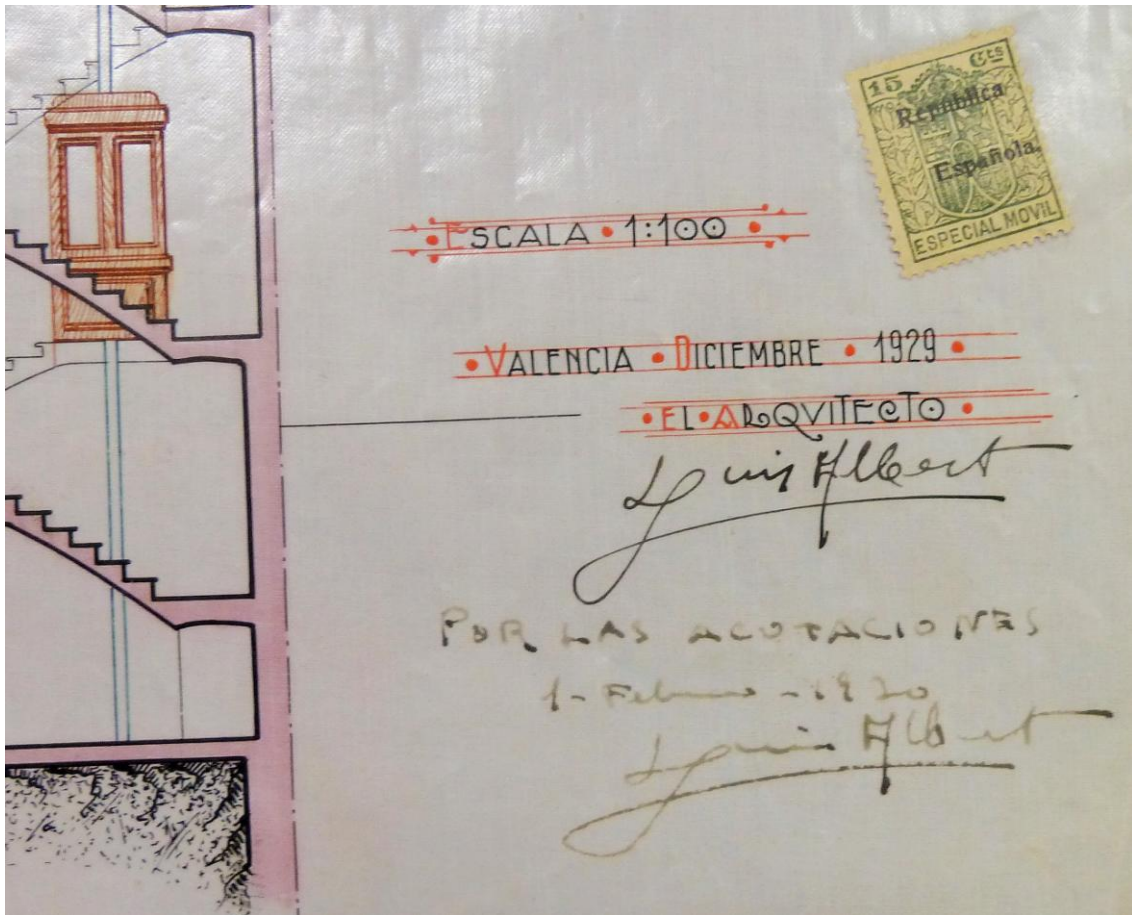 15 Cts
República
Española.
ESPECIAL MOVIL
ESCALA • 1:100
• VALENCIA • DICIEMBRE • 1929 •
• EL • ARQVITECTO •
Luis Albert
POR LAS ACOTACIONES
1-Febrero-1930
Luis Albert